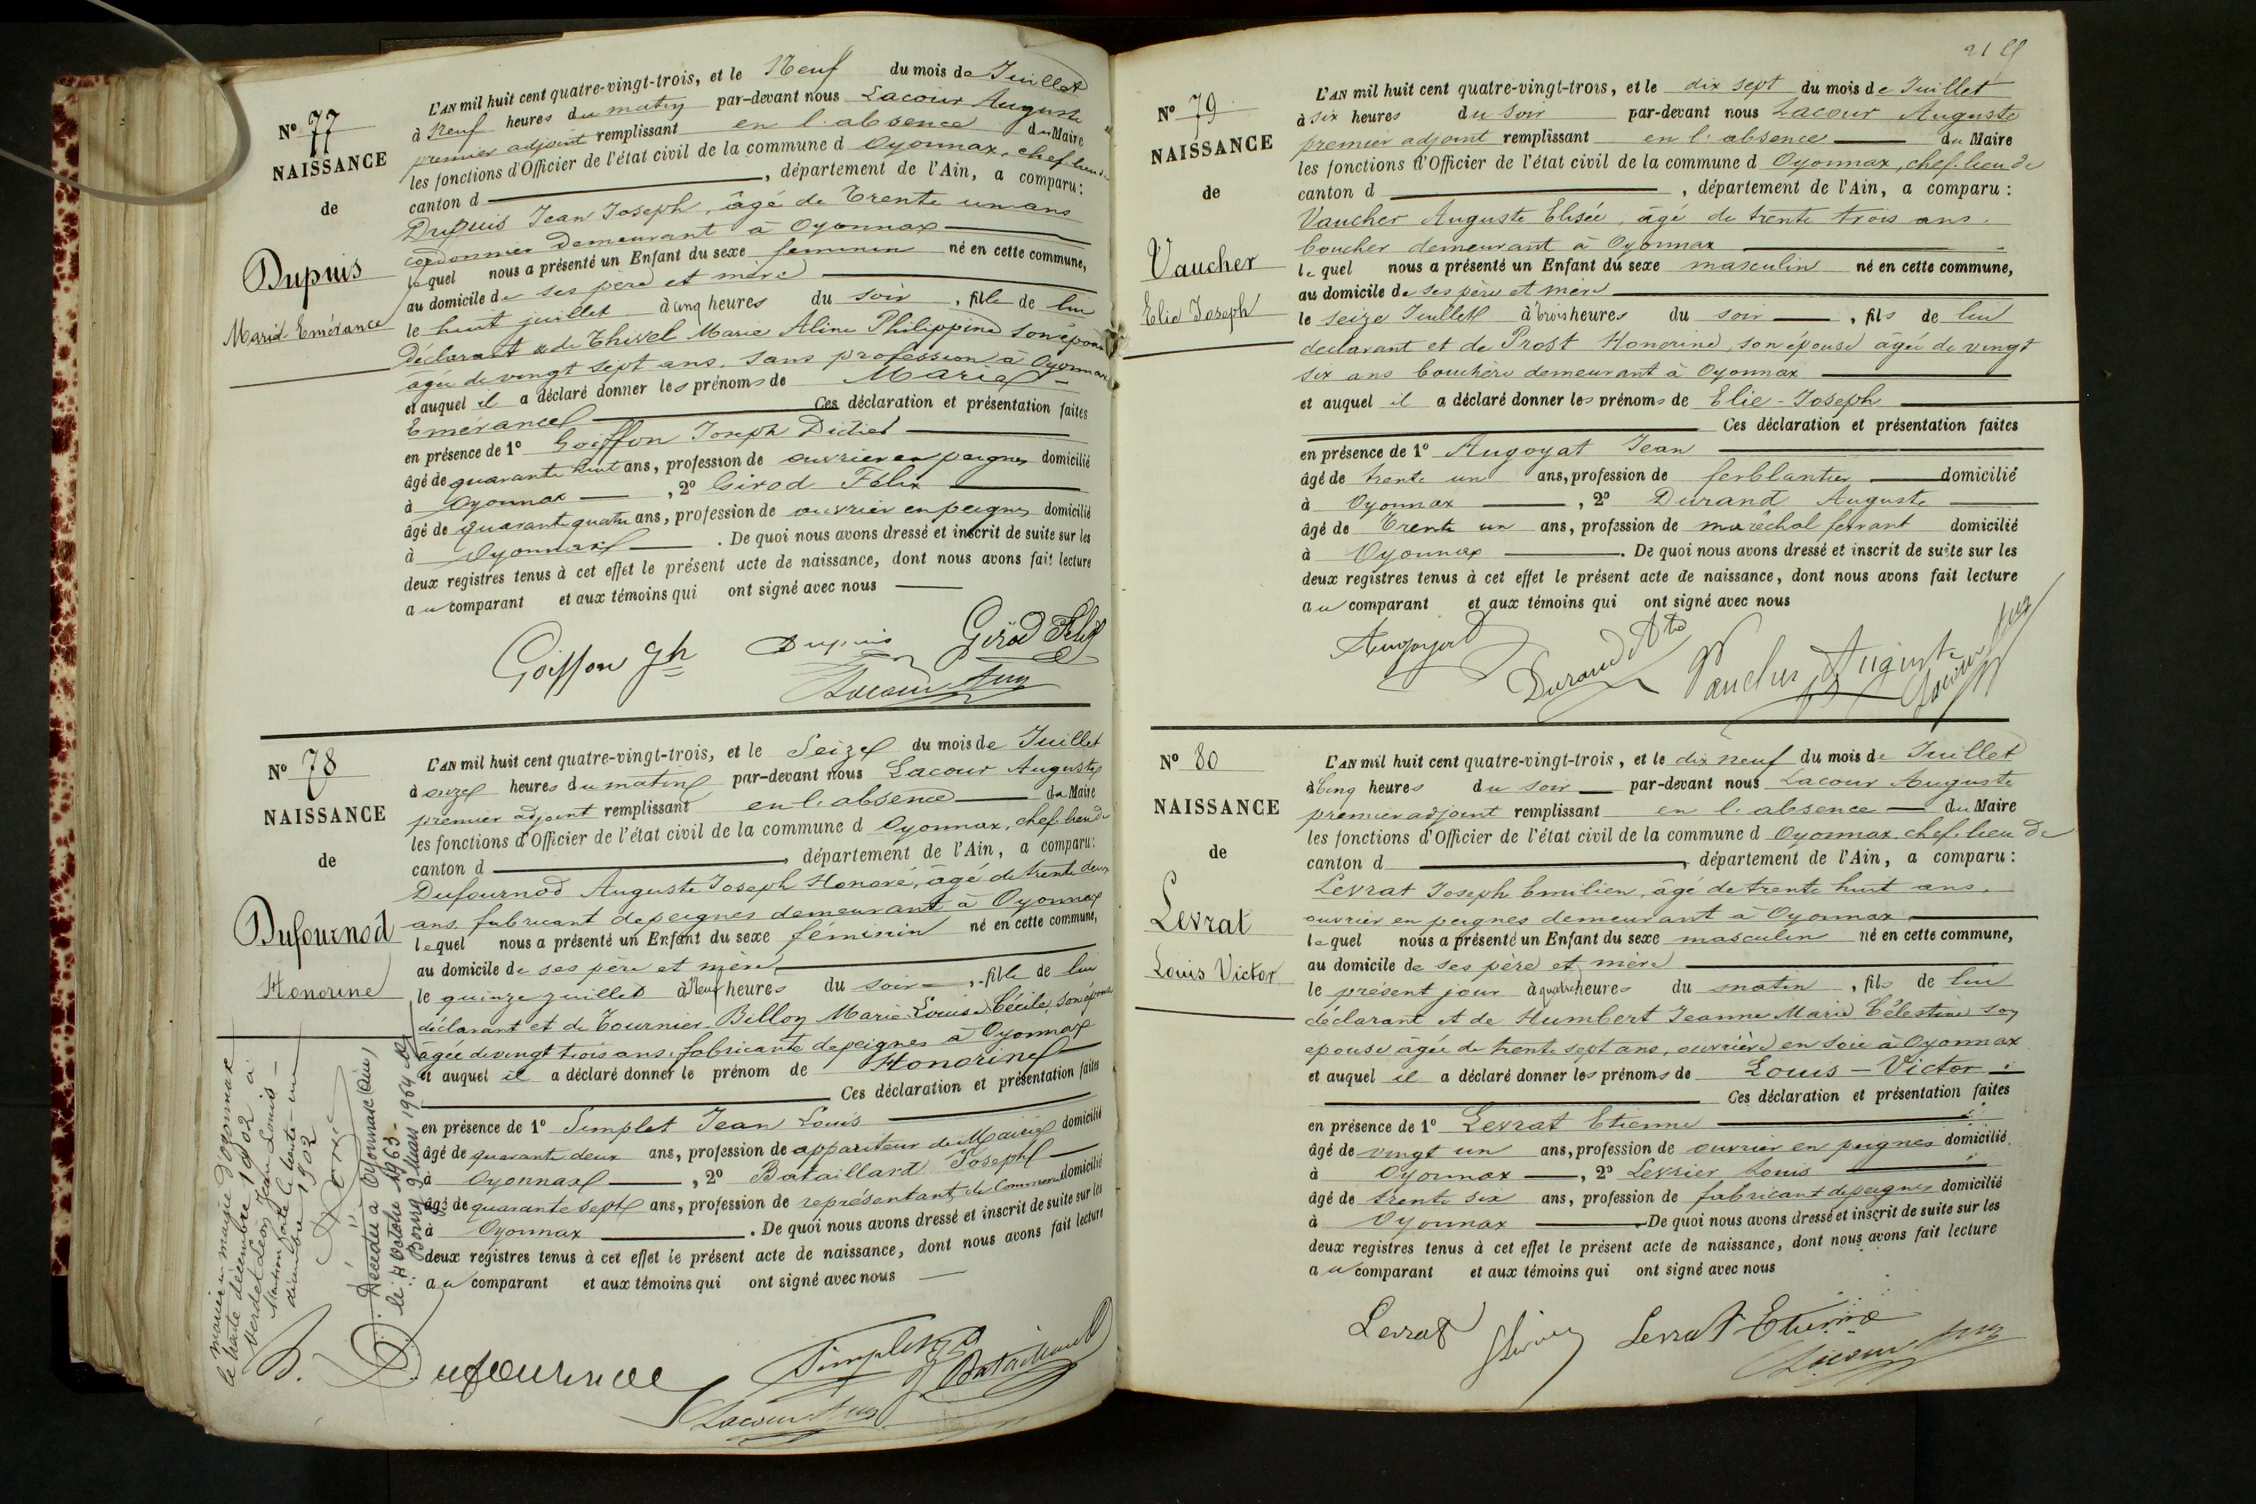 N° 77
NAISSANCE
de
Dupuis
Marie Emérance
L'AN mil huit cent quatre-vingt-trois, et le Neuf du mois de Juillet
à Neuf heures du matin par-devant nous Lacour Auguste
premier adjoint remplissant en l'absence du Maire
les fonctions d'Officier de l'état civil de la commune d Oyonnax, chef-lieu de
canton d , département de l'Ain, a comparu:
Dupuis Jean Joseph, âgé de Trente un ans
cordonnier demeurant à Oyonnax
lequel nous a présenté un Enfant du sexe feminin né en cette commune,
au domicile de ses père et mère
le huit juillet à cinq heures du soir , fille de lui
déclarant & de Thivel Marie Aline Philippine son épouse
agée de vingt sept ans, sans profession à Oyonnax
et auquel il a déclaré donner les prénoms de Marie
Emérance Ces déclaration et présentation faites
en présence de 1° Goiffon Joseph Didier
âgé de quarante huit ans, profession de ouvrier en peignes domicilié
à Oyonnax , 2° Girod Félix
âgé de quarante quatre ans, profession de ouvrier en peignes domicilié
à Oyonnax . De quoi nous avons dressé et inscrit de suite sur les
deux registres tenus à cet effet le présent acte de naissance, dont nous avons fait lecture
au comparant et aux témoins qui ont signé avec nous
Goiffon Jh Dupuis Girod Félix
Lacour Aug
N° 78
NAISSANCE
de
Dufournod
Honorine
L'AN mil huit cent quatre-vingt-trois, et le Seize du mois de Juillet
à onze heures du matin par-devant nous Lacour Auguste
premier adjoint remplissant en l'absence du Maire
les fonctions d'Officier de l'état civil de la commune d Oyonnax, chef-lieu de
canton d , département de l'Ain, a comparu:
Dufournod Auguste Joseph Honoré, âgé de trente deux
ans, fabricant de peignes demeurant à Oyonnax
lequel nous a présenté un Enfant du sexe féminin né en cette commune,
au domicile de ses père et mère
le quinze juillet à Neuf heures du soir , fille de lui
déclarant et de Tournier-Billon Marie Louise Cécile, son épouse
âgée de vingt trois ans, fabricante de peignes à Oyonnax
et auquel il a déclaré donner le prénom de Honorine
Ces déclaration et présentation faites
en présence de 1° Simplet Jean Louis
âgé de quarante deux ans, profession de appariteur de Mairie domicilié
à Oyonnax , 2° Bataillard Joseph
âgé de quarante sept ans, profession de représentant de Commerce domicilié
à Oyonnax . De quoi nous avons dressé et inscrit de suite sur les
deux registres tenus à cet effet le présent acte de naissance, dont nous avons fait lecture
au comparant et aux témoins qui ont signé avec nous
Mariée en mairie d'Oyonnax
le trente décembre 1902 à
Verdet Léon Jean Louis -
Mention faite le trente-un
décembre 1902
Décédée à Oyonnax (Ain)
le 4 Octobre 1963 -
Bourg 9 Mars 1964
Dufournod Simplet Bataillard
Lacour Aug
N° 79
NAISSANCE
de
Vaucher
Elie Joseph
L'AN mil huit cent quatre-vingt-trois, et le dix sept du mois de Juillet
à six heures du soir par-devant nous Lacour Auguste
premier adjoint remplissant en l'absence du Maire
les fonctions d'Officier de l'état civil de la commune d Oyonnax, chef-lieu de
canton d , département de l'Ain, a comparu:
Vaucher Auguste Elisée, âgé de trente trois ans.
boucher demeurant à Oyonnax
lequel nous a présenté un Enfant du sexe masculin né en cette commune,
au domicile de ses père et mère
le seize Juillet à trois heures du soir , fils de lui
déclarant et de Prost Honorine, son épouse âgée de vingt
six ans bouchère demeurant à Oyonnax
et auquel il a déclaré donner les prénoms de Elie-Joseph
Ces déclaration et présentation faites
en présence de 1° Augoyat Jean
âgé de trente un ans, profession de ferblantier domicilié
à Oyonnax , 2° Durand Auguste
âgé de Trente un ans, profession de maréchal ferrant domicilié
à Oyonnax . De quoi nous avons dressé et inscrit de suite sur les
deux registres tenus à cet effet le présent acte de naissance, dont nous avons fait lecture
au comparant et aux témoins qui ont signé avec nous
Augoyat Durand Ate Vaucher Auguste Lacour Aug
N° 80
NAISSANCE
de
Levrat
Louis Victor
L'AN mil huit cent quatre-vingt-trois, et le dix neuf du mois de Juillet
à Cinq heures du soir par-devant nous Lacour Auguste
premier adjoint remplissant en l'absence du Maire
les fonctions d'Officier de l'état civil de la commune d Oyonnax, chef-lieu de
canton d , département de l'Ain, a comparu:
Levrat Joseph Emilien, âgé de trente huit ans,
ouvrier en peignes demeurant à Oyonnax
lequel nous a présenté un Enfant du sexe masculin né en cette commune,
au domicile de ses père et mère
le présent jour à quatre heures du matin , fils de lui
déclarant et de Humbert Jeanne Marie Célestine son
épouse âgée de trente sept ans, ouvrière en soie à Oyonnax
et auquel il a déclaré donner les prénoms de Louis-Victor
Ces déclaration et présentation faites
en présence de 1° Levrat Etienne
âgé de vingt un ans, profession de ouvrier en peignes domicilié
à Oyonnax , 2° Levrier Louis
âgé de trente six ans, profession de fabricant de peignes domicilié
à Oyonnax . De quoi nous avons dressé et inscrit de suite sur les
deux registres tenus à cet effet le présent acte de naissance, dont nous avons fait lecture
au comparant et aux témoins qui ont signé avec nous
Levrat Levrat Etienne
Lacour Aug